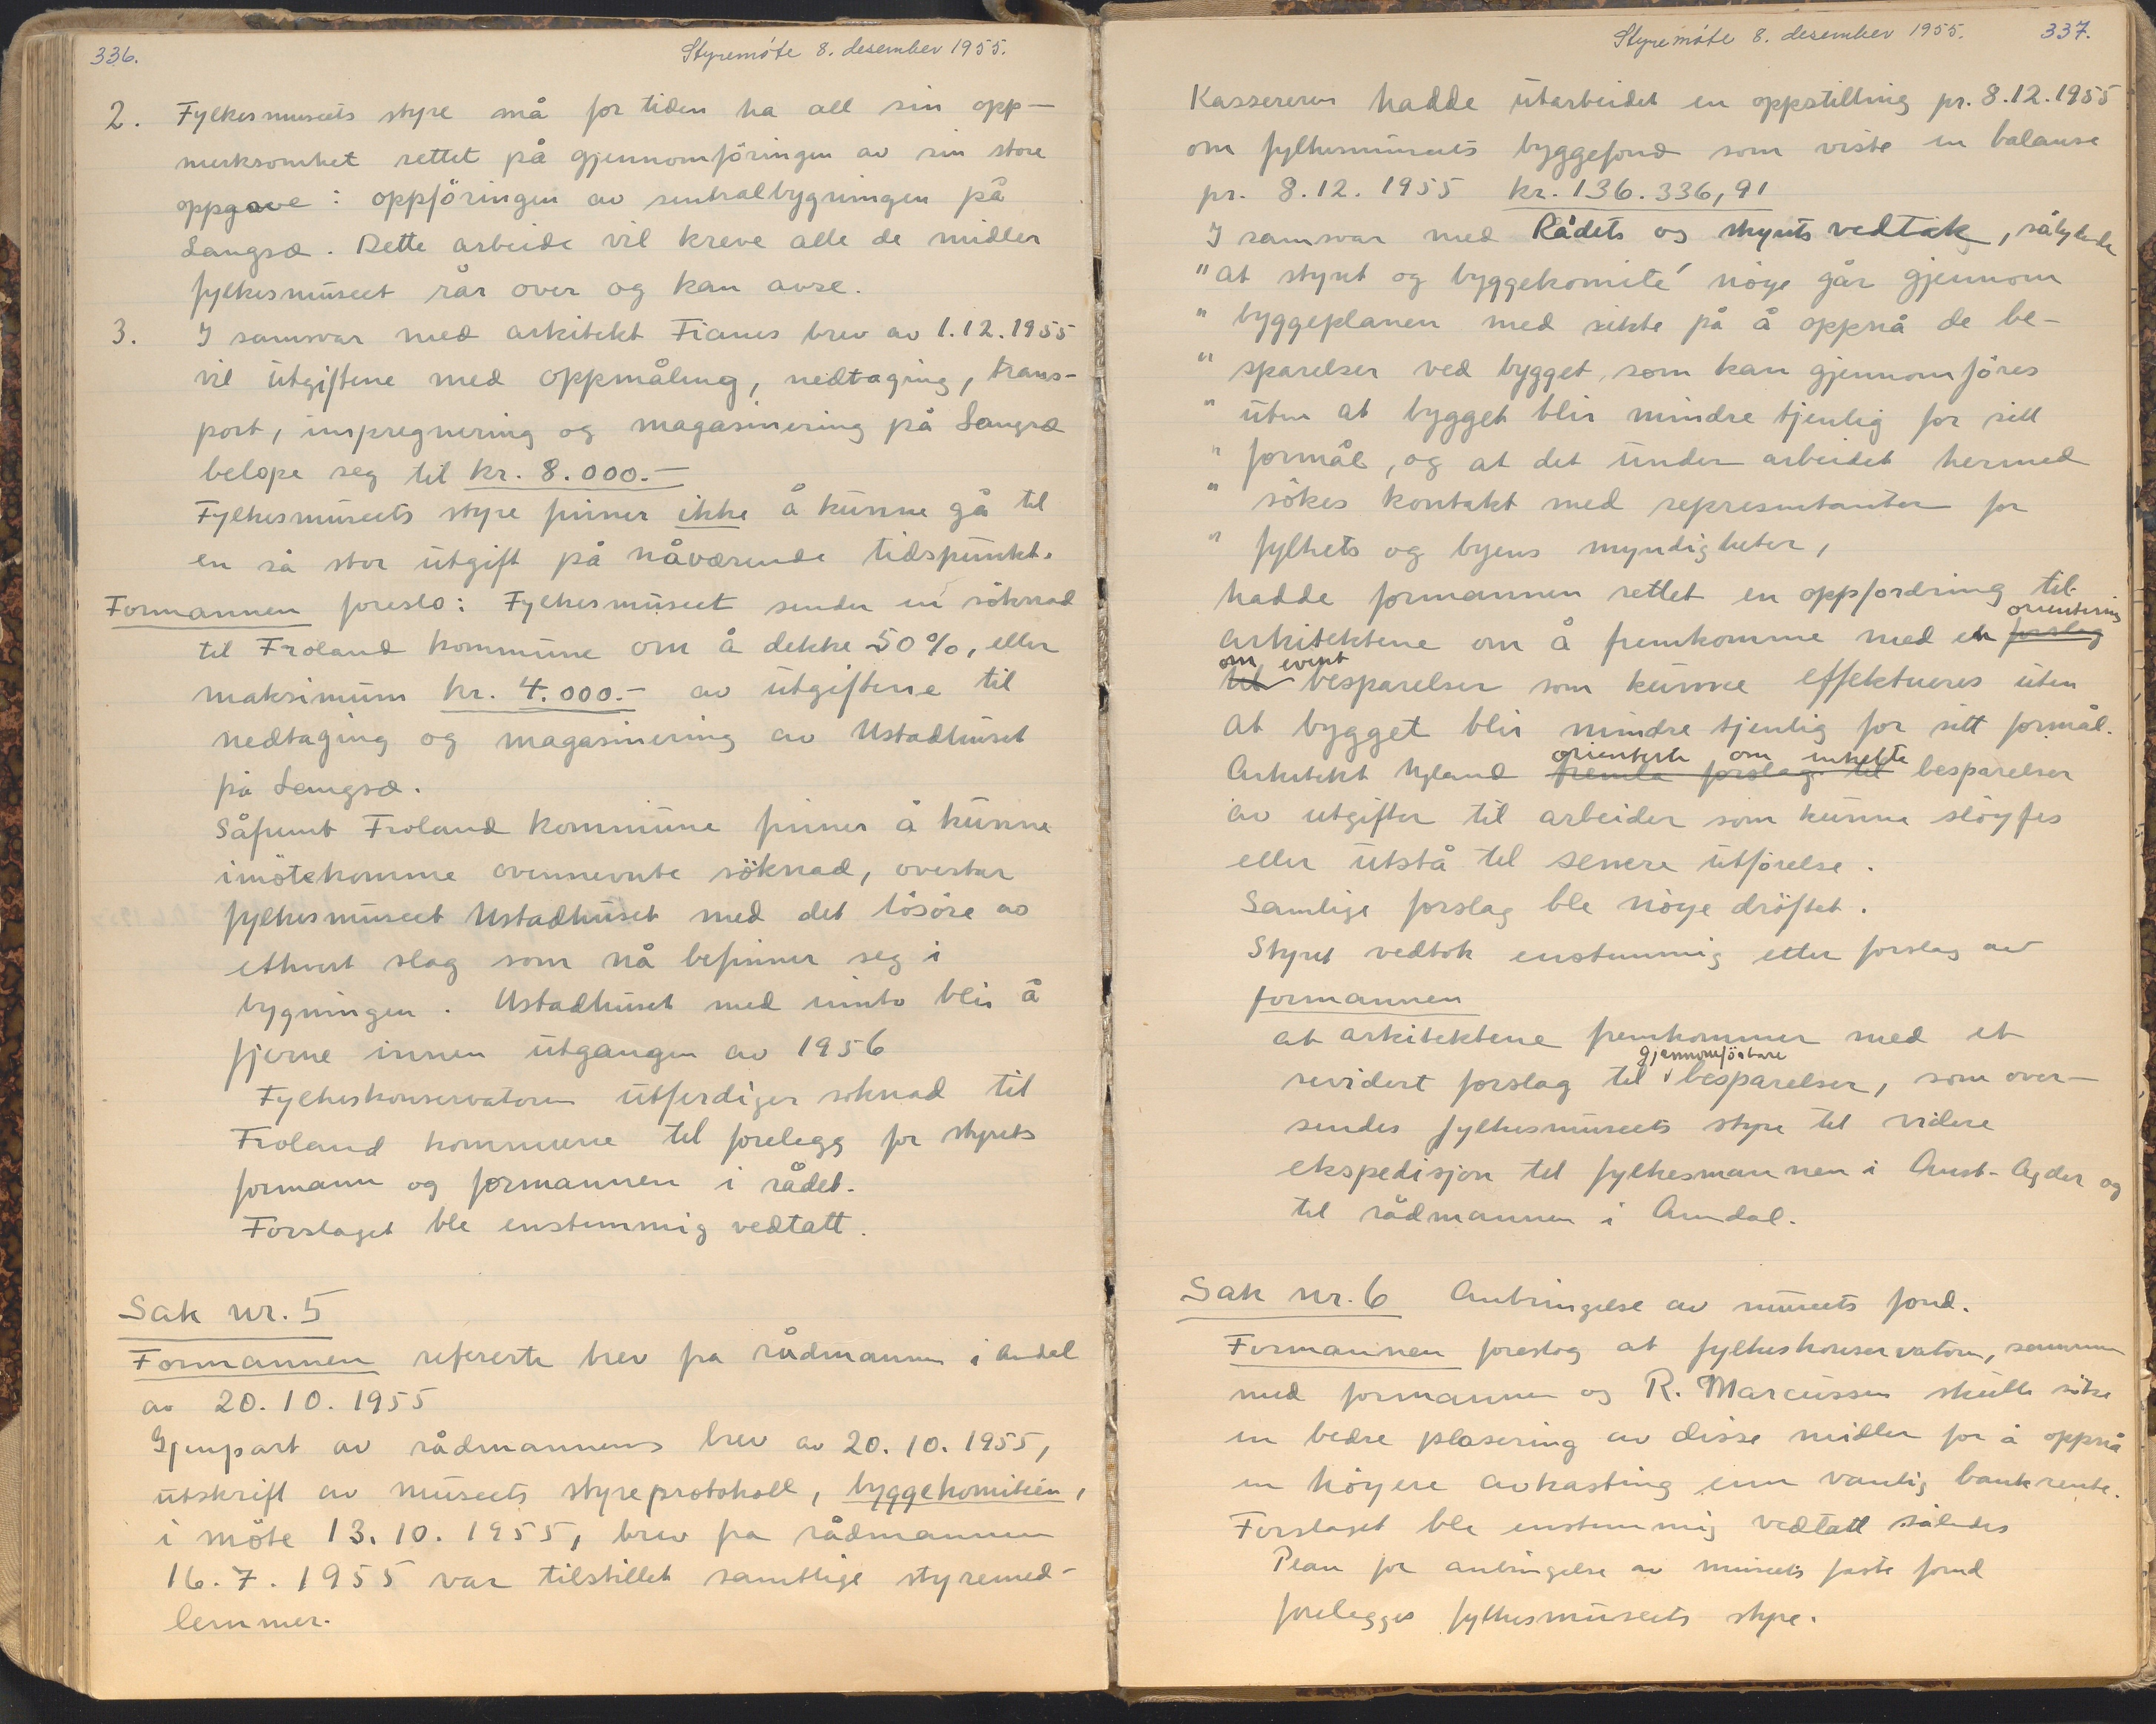 336.
Styremöte 8. desember 1955.
2. Fylkesmuseets styre må for tiden ha all sin opp-
merksomhet rettet på gjennomföringen av sin store
oppgave: oppföringen av sentralbygningen på
Langsæ. Dette arbeide vil kreve alle de midler
fylkesmuseet rår over og kan avse.
3. I samsvar med arkitekt Fianes brev av 1.12.1955
vil utgiftene med oppmåling, nedtaging, trans-
port, impregnering og magasinering på Langsæ
belöpe seg til kr. 8.000.-
Fylkesmuseets styre finner ikke å kunne gå til
en så stor utgift på nåværende tidspunkt.
Formannen foreslo: Fylkesmuseet sender en söknad
til Froland kommune om å dekke 50%, eller
maksimum kr. 4.000.- av utgiftene til
nedtaging og magasinering av Ustadhuset
på Langsæ.
Såfremt Froland kommune finner å kunne
imötekomme ovennevnte söknad, overtar
fylkesmuseet Ustadhuset med det lösöre av
ethvert slag som nå befinner seg i
bygningen. Ustadhuset med innbo blir å
fjerne innen utgangen av 1956
Fylkeskonservatoren utferdiger söknad til
Froland kommune til forelegg for styrets
formann og formannen i rådet.
Forslaget ble enstemmig vedtatt.
Sak nr. 5
Formannen refererte brev fra rådmannen i Arendal
av 20.10.1955
Gjenpart av rådmannens brev av 20.10.1955,
utskrift av museets styreprotokoll, byggekomiteen,
i möte 13.10.1955, brev fra rådmannen
16.7.1955 var tilstillet samtlige styremed-
lemmer.
Styremöte 8. desember 1955.
337.
Kassereren hadde utarbeidet en oppstilling pr. 8.12.1955
om fylkesmuseets byggefond som viste en balanse
pr. 8.12.1955 kr. 136.336,91
I samsvar med Rådets og styrets vedtak, sålydende
"at styret og byggekomité nöye går gjennom
" byggeplanen med sikte på å oppnå de be-
" sparelser ved bygget som kan gjennomföres
" uten at bygget blir mindre tjenlig for sitt
" formål, og at det under arbeidet hermed
" sökes kontakt med representanter for
" fylkets og byens myndigheter,
hadde formannen rettet en oppfordring til
orientering
arkitektene om å fremkomme med en forslag
om event
til besparelser som kunne effektueres uten
at bygget blir mindre tjenlig for sitt formål.
orienterte om enkelte
Arkitekt Ugland fremla forslag til besparelser
av utgifter til arbeider som kunne slöyfes
eller utstå til senere utförelse.
Samlige forslag ble nöye dröftet.
Styret vedtok enstemmig etter forslag av
formannen
at arkitektene fremkommer med et
gjennomförbare
revidert forslag til besparelser, som over-
sendes fylkesmuseets styre til videre
ekspedisjon til fylkesmannen i Aust-Agder og
til rådmannen i Arendal.
Sak nr. 6 Anbringelse av museets fond.
Formannen foreslog at fylkeskonservatoren, sammen
med formannen og R. Marcussen skulle söke
en bedre plasering av disse midler for å oppnå
en höyere avkasting enn vanlig bankrente.
Forslaget ble enstemmig vedtatt således
Plan for anbringelse av museets faste fond
forelegges fylkesmuseets styre.